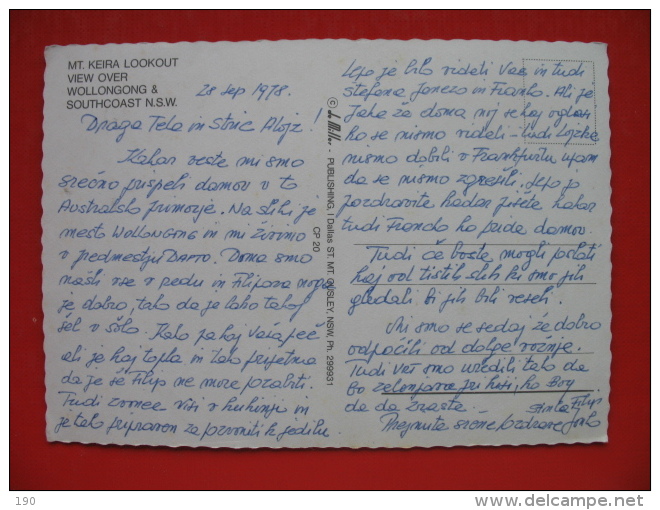 MT. KEIRA LOOKOUT
VIEW OVER
WOLLONGONG &
SOUTHCOAST N.S.W.
28 sep 1978.
Draga Teta in Stric Alojz!
Kakor veste mi smo
srečno prispeli domov v to
Australsko primorje. Na sliki je
mesto Wollongong in mi živimo
v predmestju Dapto. Doma smo
našli vse v redu in Filipova noga
je dobro, tako da je lahko takoj
šel v šolo. Kako pa kaj vaša peč
ali je kaj topla in tako prijetna
da je še Filip ne more pozabiti.
Tudi zvonec visi v kuhinji in
je tako pripraven za pozvoniti k jedilu.
© PUBLISHING, 1 Dallas ST. MT. OUSLEY, NSW. Ph. 299931
CP 20
Lepo je bilo videti Vas in tudi
Štefana Janeza in Franko. Ali je
Jaka že doma naj se kaj oglasi
ko se nismo videli – tudi Lojzka
nismo dobili v Frankfurtu upam
da se nismo zgrešili. Lepo jo
pozdravite kadar pišete kakor
tudi ko pride domov.
Tudi če boste mogli poslati
kaj od tistih slik ki smo jih
gledali. Bi jih bili veseli.
Mi smo se sedaj že dobro
odpočili od dolge vožnje.
Tudi vrt smo uredili tako da
bo zelenjava pri hiši, ko Bog
da da zraste.
Prejmite srčne pozdrave
Filip